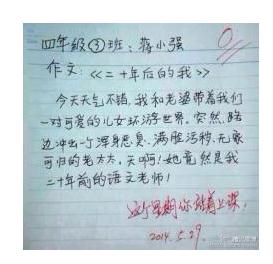 四年级③班：蒋小强
0
作文：《二十年后的我》
今天天气不错，我和老婆带着我们
一对可爱的儿女环游世界，突然，路
边冲出一个浑身恶臭、满脸污秽、无家
可归的老太太，天啊！她竟然是我
二十年前的语文老师！
这个星期你站着上课，
2014.5.29.